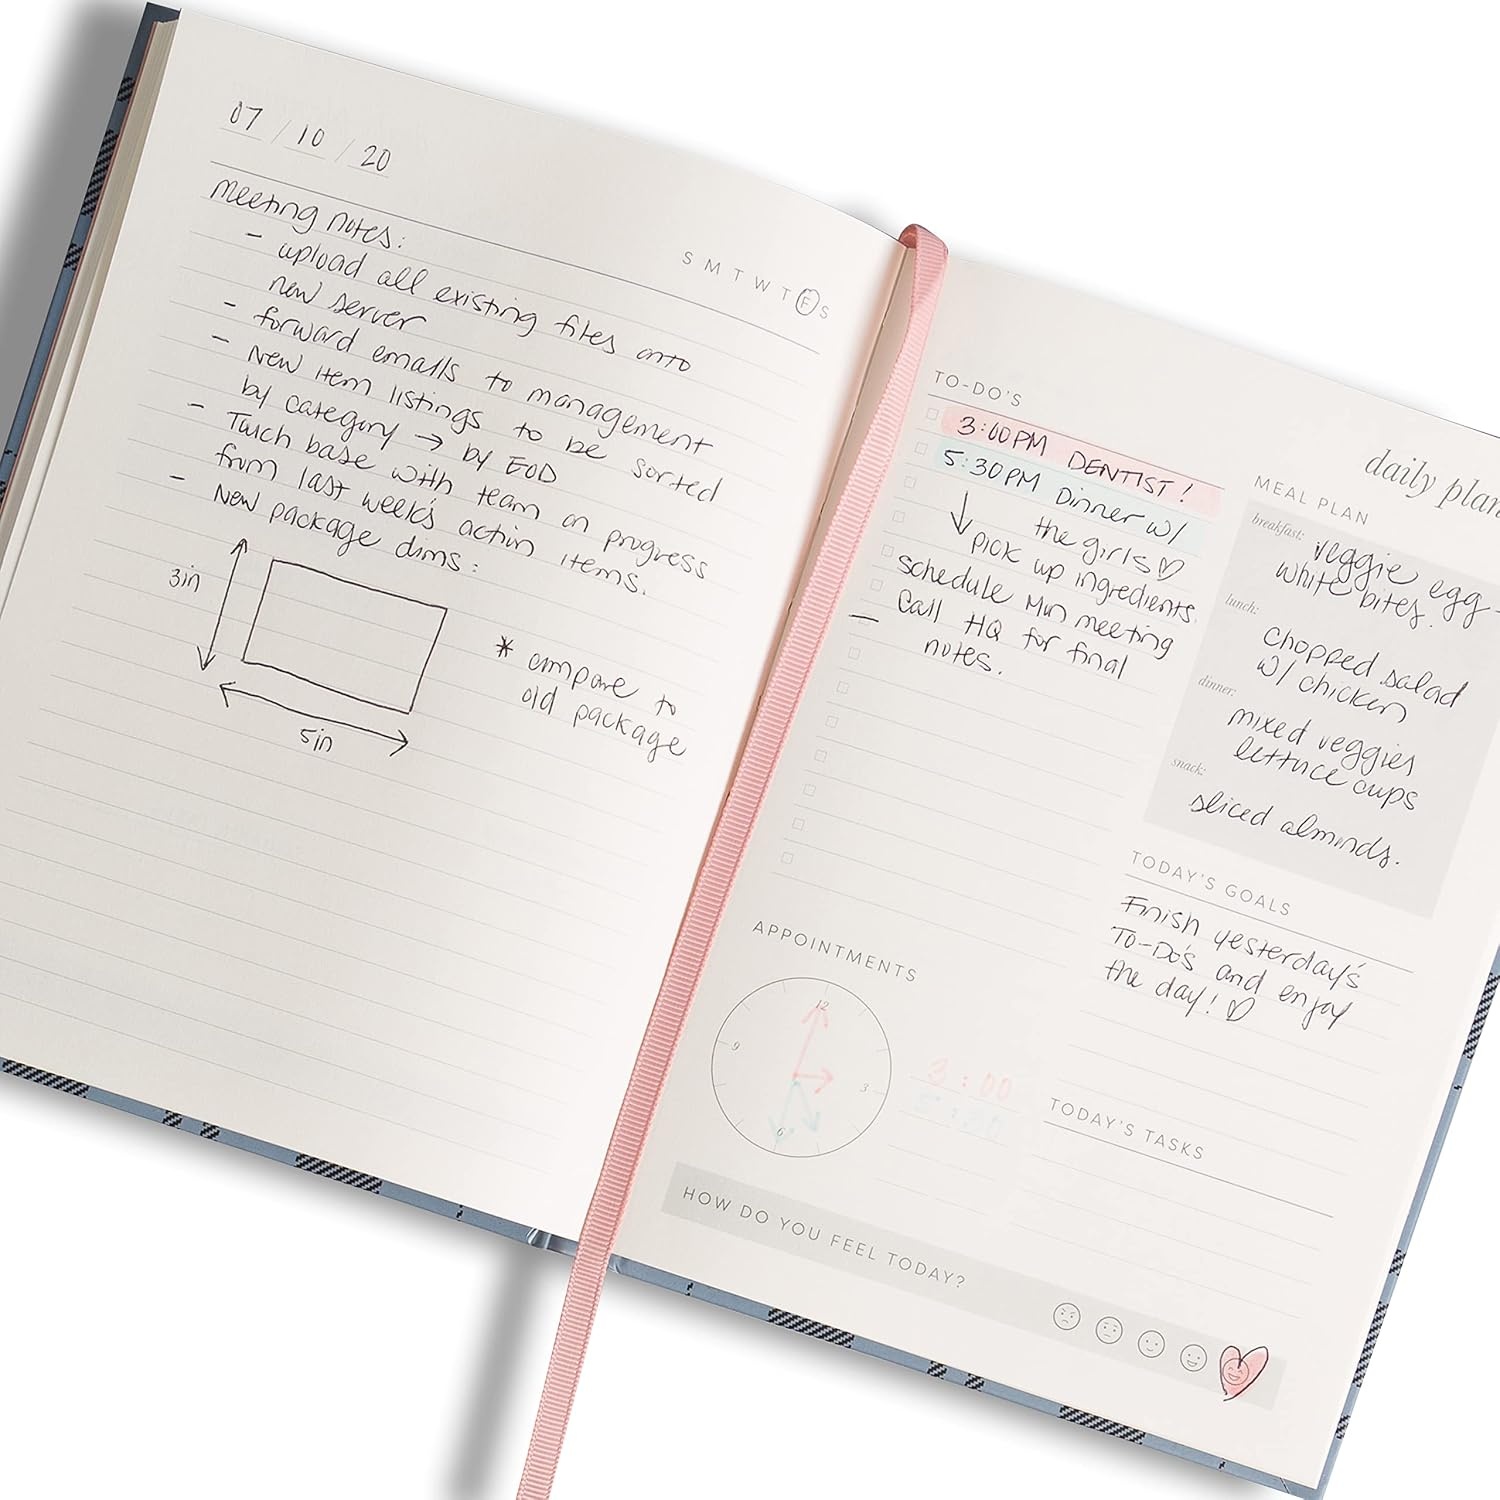 07 / 10 / 20
S M T W T F S
Meeting notes:
- upload all existing files onto
new server
- forward emails to management
- New item listings to be sorted
by category → by EOD
- Touch base with team on progress
from last week's action items.
- New package dims:
3in
5in
* compare to
old package
daily plan
TO-DO'S
3:00PM DENTIST!
5:30PM Dinner w/
the girls ♡
↓ pick up ingredients.
schedule Mon meeting
- Call HQ for final
notes.
MEAL PLAN
breakfast: veggie egg-
white bites.
lunch: chopped salad
w/ chicken
dinner: mixed veggies
lettuce cups
snack: sliced almonds.
TODAY'S GOALS
Finish yesterday's
To-Do's and enjoy
the day! ♡
APPOINTMENTS
12
9
3
6
3:00
5:30
TODAY'S TASKS
HOW DO YOU FEEL TODAY?